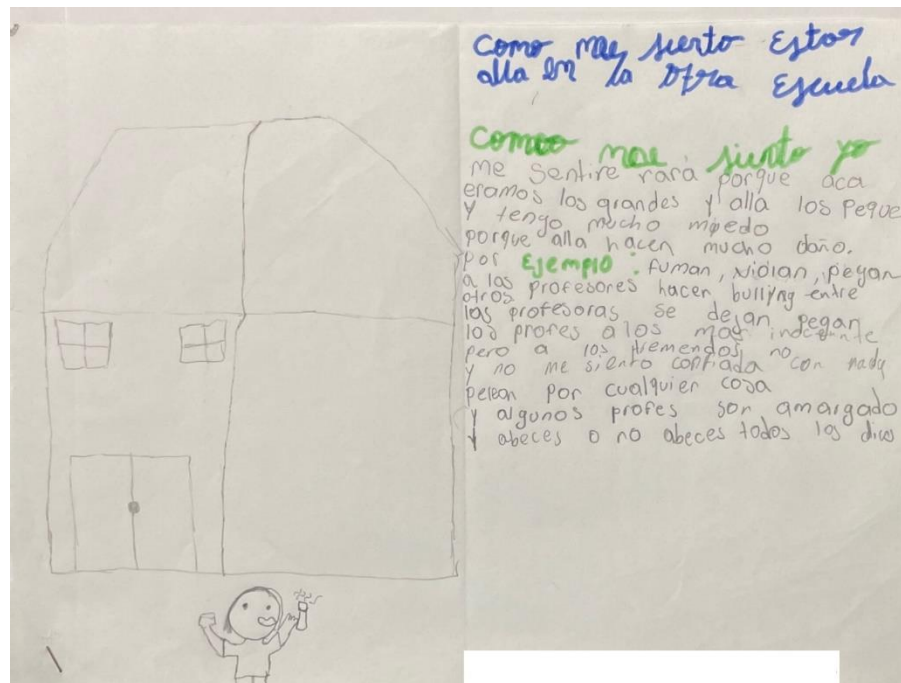 Como me siento Estar
alla en la Otra Escuela
Como me siento yo
me sentire rara porque aca
eramos los grandes y alla los peque
y tengo mucho miedo
porque alla hacen mucho daño.
por Ejemplo : fuman, violan, pegan
a los profesores hacen bullyng entre
otros profesoras se dejan pegan
los profes a los mas
pero a los tremendos no
y no me siento confiada con nady
pelean por cualquier cosa
y algunos profes son amargado
y abeces o no abeces todos los dias